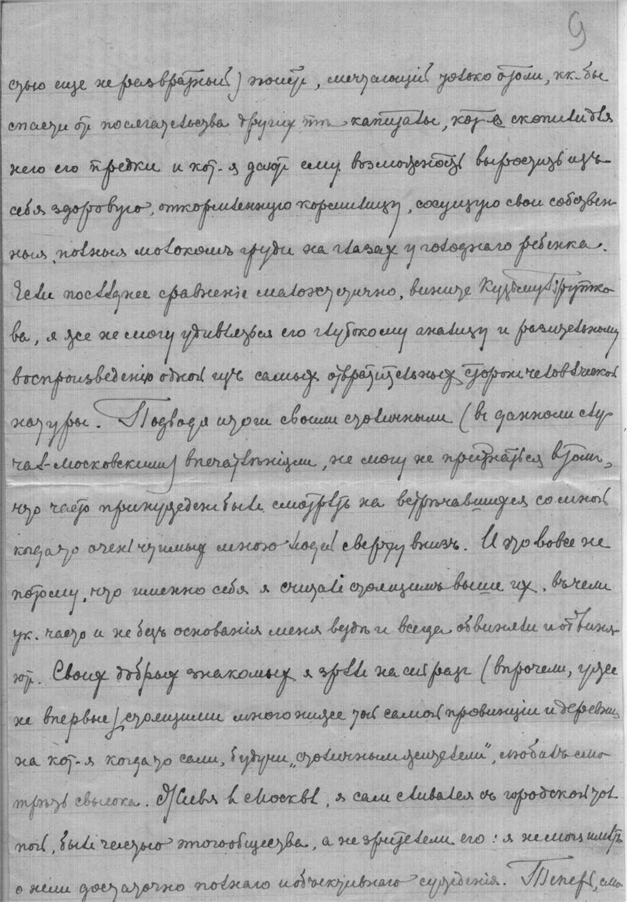 9
стью еще не развратный) поэт, мечтающий только о том, кк. бы
спасти от посягательства других тѣ капиталы, кот-е скопили для
него его предки и кот-я дают ему возможность выростить изъ
себя здоровую, откормленную кормилицу, сосущую свои собствен-
ныя, полныя молокомъ груди на глазах у голоднаго ребенка.
Если послѣднее сравненіе малоэстетично, вините Кузьму Прутко-
ва, я же не могу удивляться его глубокому анализу и разительному
воспроизведенію одной изъ самых отвратительных сторон человѣческой
натуры. Подводя итоги своим столичным (въ данном слу-
чаѣ - московским) впечатлѣніям, не могу не признаться в том,
что часто принужден был смотрѣть на встрѣчавшихся со мной
когда то очень чтимых мною людей сверху вниз. И это вовсе не
потому, что именно себя я считал стоящимъ выше их, въ чем
ук. часто и не безъ основанія меня вездѣ и всегда обвиняли и обвиня-
ют. Своих добрых знакомых я зрѣл на сей раз (впрочем, уже
не впервые) стоящими много ниже той самой провинціи и деревни,
на кот-я когда то сами, будучи „столичными жителями", любилъ смо-
трѣть свысока. Живя в Москвѣ, я сам сливался съ городской тол-
пой, был частью этого общества, а не зрителем его: я не мог имѣть
о нем достаточно полнаго и объективнаго сужденія. Теперь, смо-